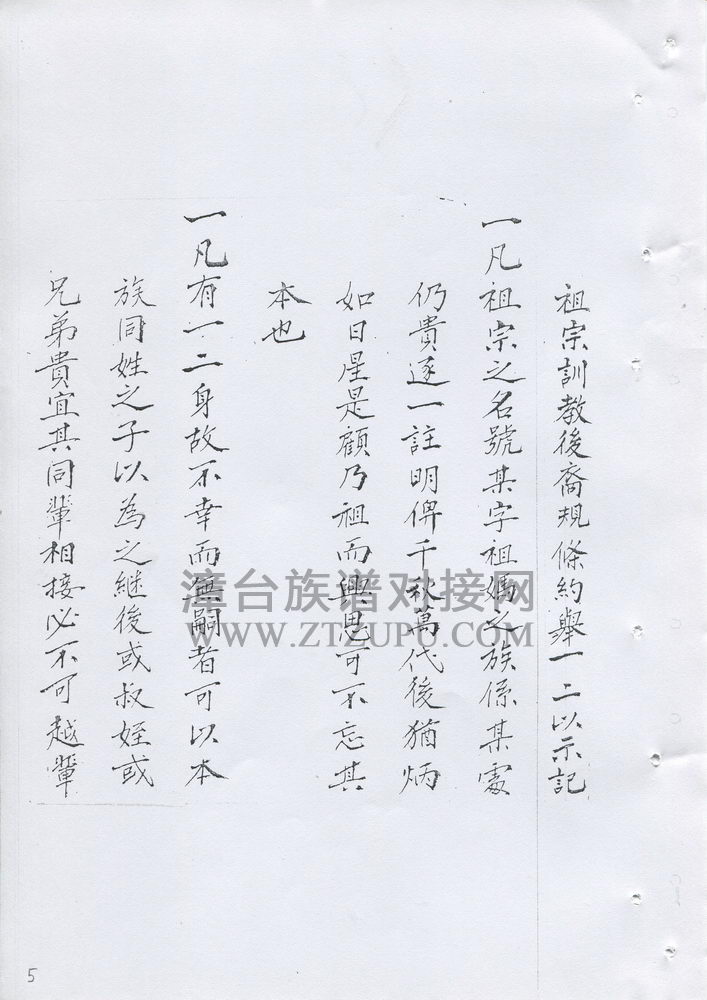 祖宗訓教後裔規條約舉一二以示記
一凡祖宗之名號某字祖媽之族係某處
仍貴逐一註明俾千秋萬代後猶炳
如日星是顧乃祖而興思可不忘其
本也
一凡有一二身故不幸而無嗣者可以本
族同姓之子以為之継後或叔姪或
兄弟貴宜其同輩相接必不可越輩
漳台族谱对接网
WWW.ZTZUPU.COM
5